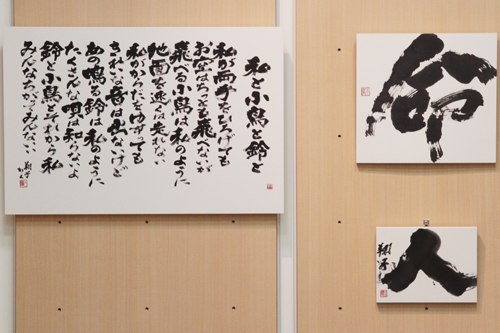 私と小鳥と鈴と
私が両手をひろげても
お空はちっとも飛べないが
飛べる小鳥は私のように
地面を速くは走れない
私がからだをゆすっても
きれいな音は出ないけど
あの鳴る鈴は私のように
たくさんな唄は知らないよ
鈴と小鳥とそれから私
みんなちがってみんないい
翔子かく
命
人
翔子